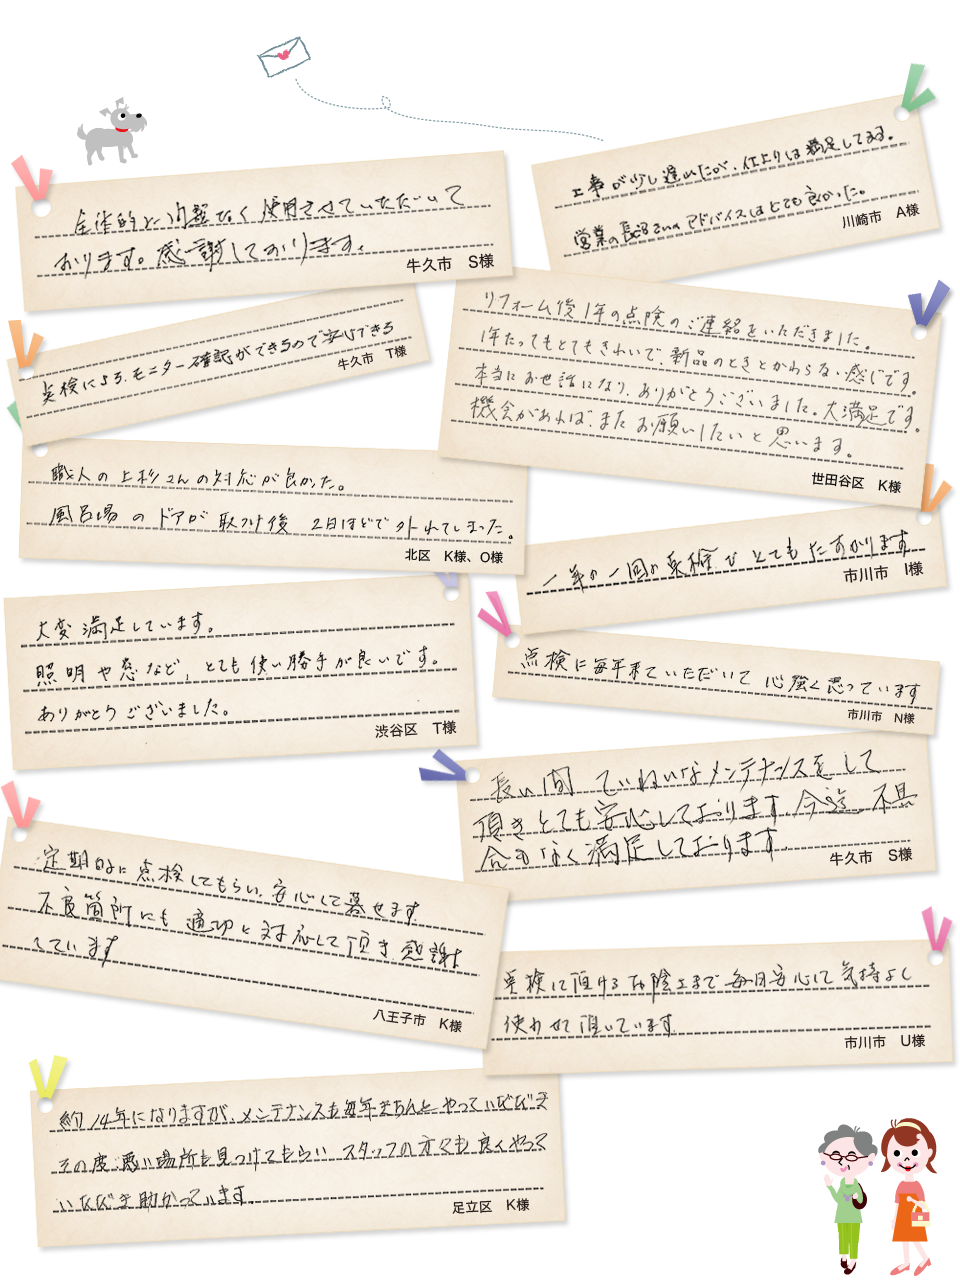 全体的に問題なく使用させていただいて
おります。感謝しております。
牛久市 S様
工事が少し遅れたが、仕上りは満足してます。
営業の長沼さんのアドバイスはとても良かった。
川崎市 A様
点検による、モニター確認ができるので安心できる
牛久市 T様
リフォーム後1年の点検のご連絡をいただきました。
1年たってもとてもきれいで、新品のときとかわらない感じです。
本当にお世話になり、ありがとうございました。大満足です。
機会があれば、またお願いしたいと思います。
世田谷区 K様
職人の上杉さんの対応が良かった。
風呂場のドアが取付後 2日ほどで外れてしまった。
北区 K様、O様
一年の一回の点検でとてもたすかります
市川市 I様
大変満足しています。
照明や窓など、とても使い勝手が良いです。
ありがとうございました。
渋谷区 T様
点検に毎年来ていただいて 心強く思っています
市川市 N様
長い間 ていねいなメンテナンスをして
頂きとても安心しております。今迄、不具
合もなく満足しております。
牛久市 S様
定期的に点検してもらい、安心して暮せます
不良箇所にも適切と対応して頂き感謝
しています
八王子市 K様
点検に頂ける お陰さまで毎日安心にて気持よく
使わせて頂いています
市川市 U様
約14年になりますが、メンテナンスも毎年きちんとやっていただき
その度、悪い場所も見つけてもらい スタッフの方々も良くやって
いただき助かっています。
足立区 K様